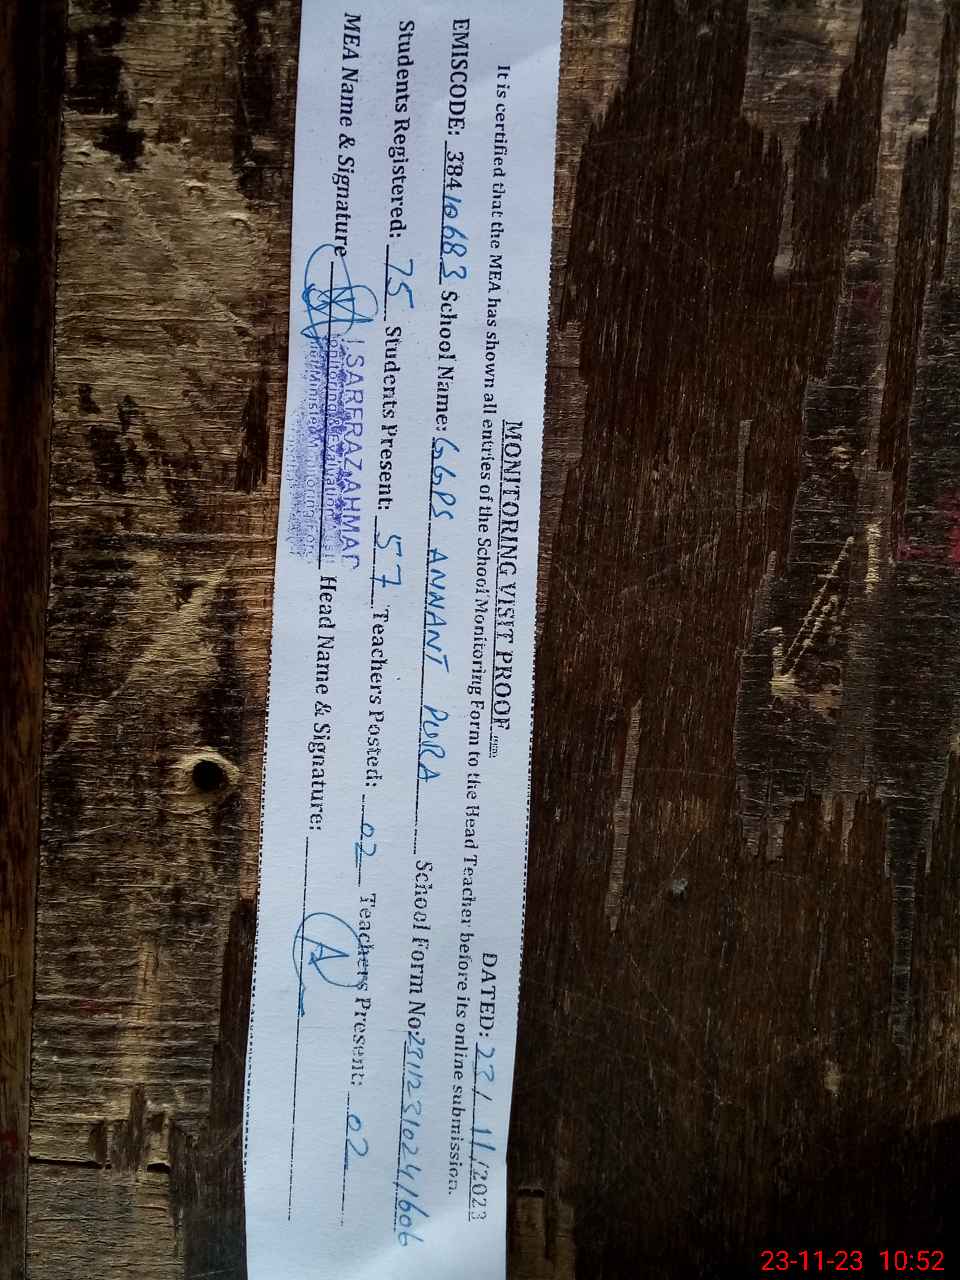 MONITORING VISIT PROOF DATED: 23/11/2023
It is certified that the MEA has shown all entries of the School Monitoring Form to the Head Teacher before its online submission.
EMISCODE: 38410683 School Name: GGPS ANNANT PURA School Form No: 23112310241606
Students Registered: 75 Students Present: 57 Teachers Posted: 02 Teachers Present: 02
MEA Name & Signature Head Name & Signature:
SARFRAZ AHMAD
Monitoring & Evaluation
23-11-23 10:52